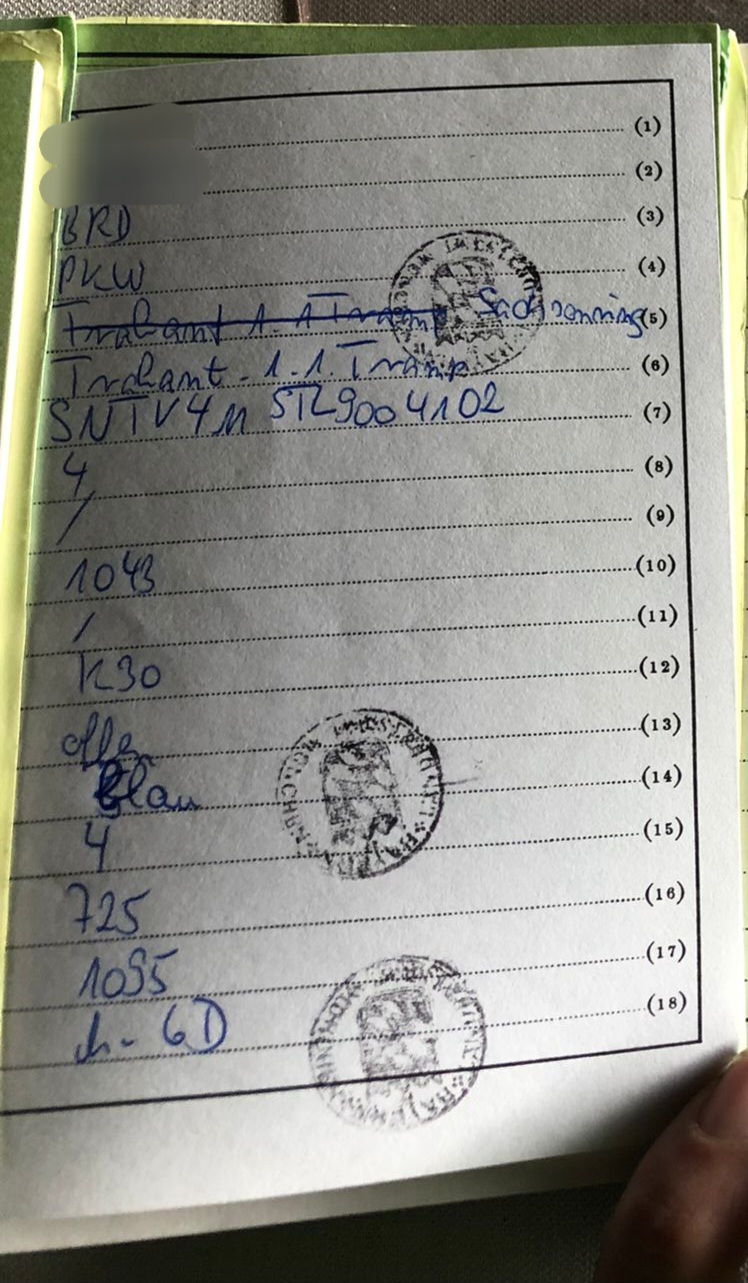 (1)
(2)
BRD (3)
PKW (4)
Trabant 1.1 Tramp Sachsenring (5)
Trabant - 1.1. Tramp (6)
SNTV4M STZ9004102 (7)
4 (8)
/ (9)
1043 (10)
/ (11)
K30 (12)
offen (13)
Blau (14)
4 (15)
725 (16)
1095 (17)
6D (18)